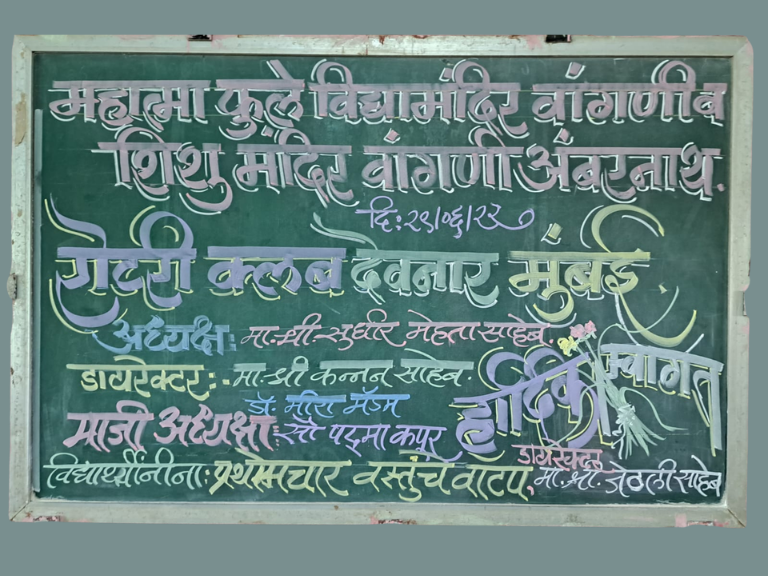 महात्मा फुले विद्यामंदिर वांगणी व
शिशु मंदिर वांगणी अंबरनाथ.
दि:२९/०६/२२
रोटरी क्लब देवनार मुंबई.
अध्यक्ष: मा. श्री. सुधीर मेहता साहेब.
डायरेक्टर:- मा. श्री कन्नन साहेब.
हार्दिक स्वागत
डॉ. मीरा मॅडम
माजी अध्यक्षा: सौ पद्मा कपूर
डायरेक्टर
विद्यार्थ्यांनीना: प्रथोमचार वस्तुंचे वाटप, मा. श्री. जेठली साहेब